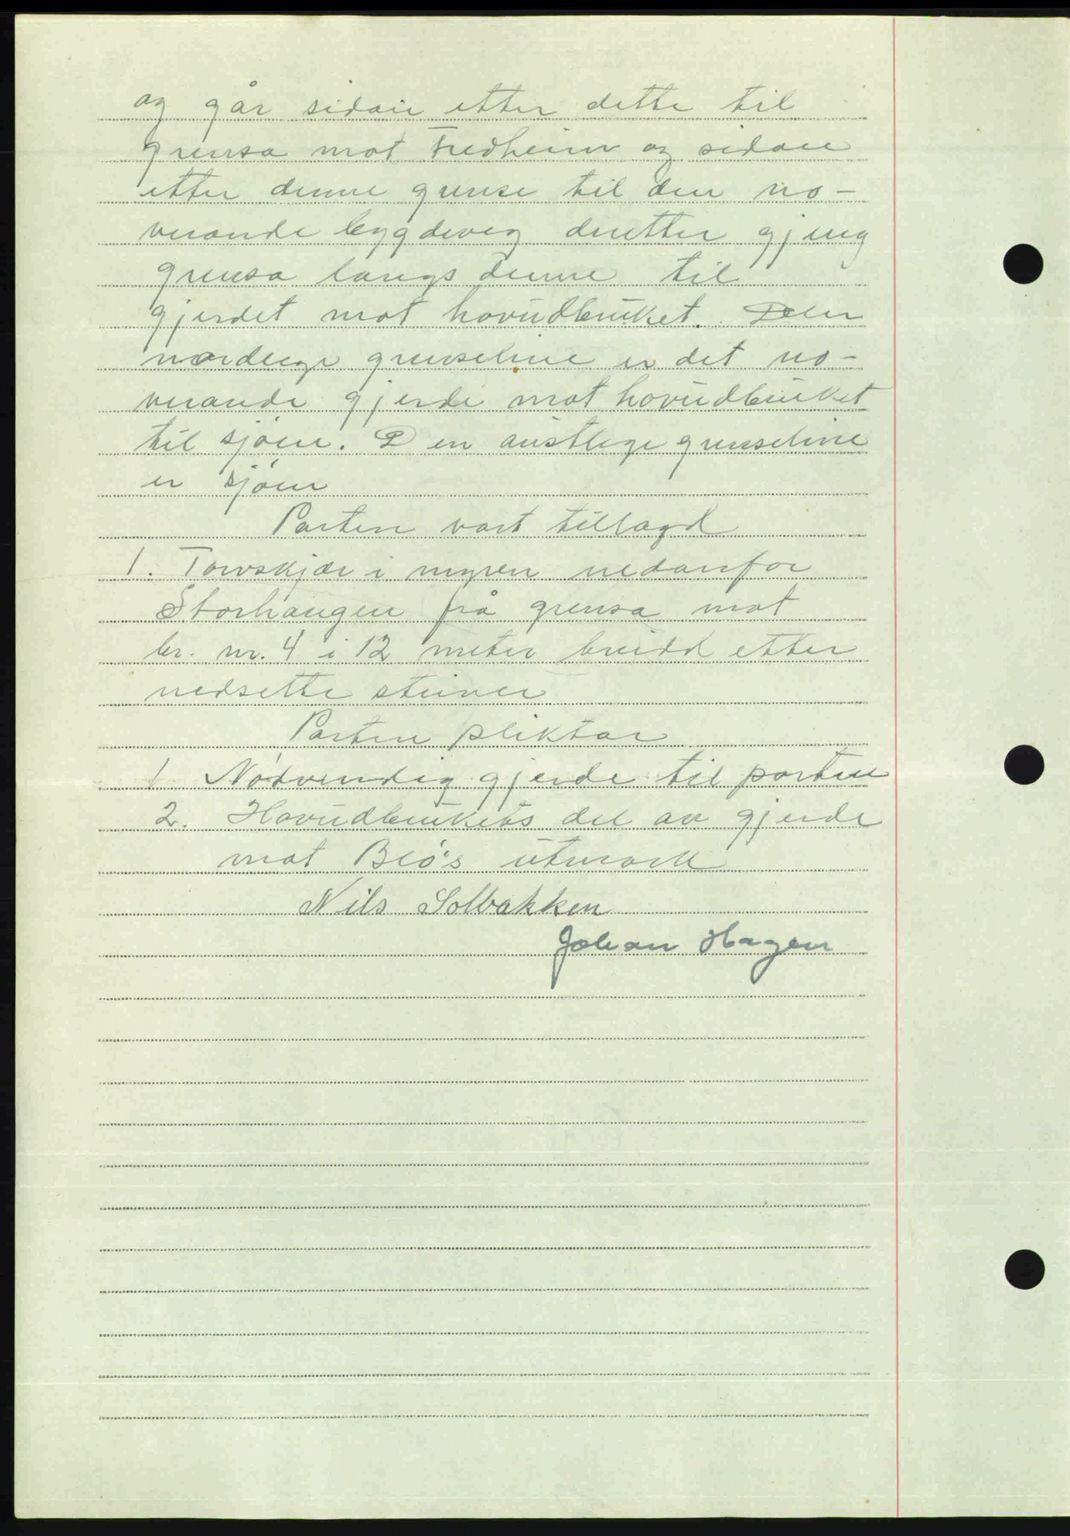 og går sidan etter dette til
grensa mot Fredheim og sidan
etter denne grense til den no-
verande bygdeveg deretter gjeng
grensa langs denne til
gjerdet mot hovudbruket. Den
nordlege grenseline er det no-
verande gjerde mot hovudbruket
til sjøen. Den austlege grenseline
er sjøen
Parten vart tillagd
1. Torvskjær i myren nedanfor
Storhaugen frå grensa mot
br. nr. 4 i 12 meter breidd etter
nedsette steiner
Parten pliktar
1 Nødvendig gjerde til parten
2. Hovudbrukets del av gjerde
mot Blø's utmark
Nils Solbakken
Johan Hagen